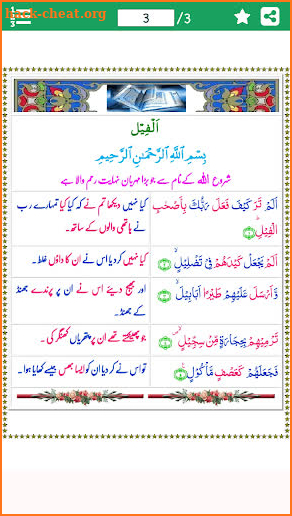 hack-cheat.org
3 /3
اَلْفِيْل
بِسْمِ اللّٰهِ الرَّحْمٰنِ الرَّحِيْمِ
شروع اللہ کے نام سے جو بڑا مہربان نہایت رحم والا ہے
اَلَمْ تَرَ كَيْفَ فَعَلَ رَبُّكَ بِاَصْحٰبِ
الْفِيْلِ
کیا نہیں دیکھا تم نے کہ کیا کیا تمہارے رب
نے ہاتھی والوں کے ساتھ۔
اَلَمْ يَجْعَلْ كَيْدَهُمْ فِيْ تَضْلِيْلٍ
کیا نہیں کر دیا اس نے ان کا داؤں غلط۔
وَّاَرْسَلَ عَلَيْهِمْ طَيْرًا اَبَابِيْلَ
اور بھیج دیئے اس نے ان پر پرندے جھنڈ
کے جھنڈ۔
تَرْمِيْهِمْ بِحِجَارَةٍ مِّنْ سِجِّيْلٍ
جو پھینکتے تھے ان پر پتھریاں کھنگر کی۔
فَجَعَلَهُمْ كَعَصْفٍ مَّاْكُوْلٍ
تو اس نے کر دیا ان کو ایسا جیسے کھایا ہوا۔
hack-cheat.org